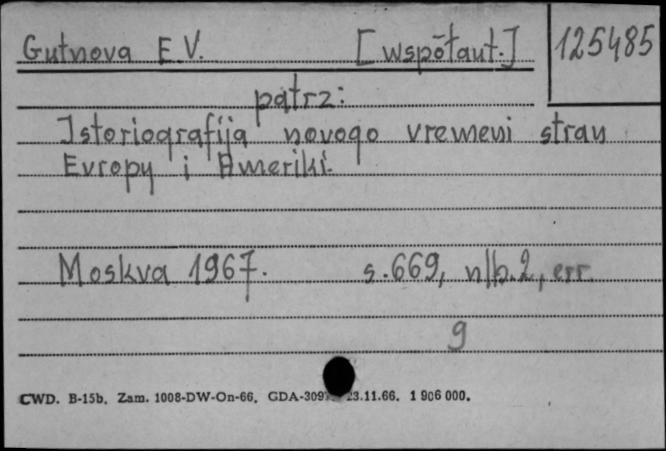 Gutnova E.V. [współaut.] 125485
patrz:
Istoriografija novogo vremeni stran
Evropy i Ameriki.
Moskva 1967. s. 669, nlb. 2, err.
9
CWD. B-15b. Zam. 1008-DW-On-66. 23.11.66. 1 906 000.